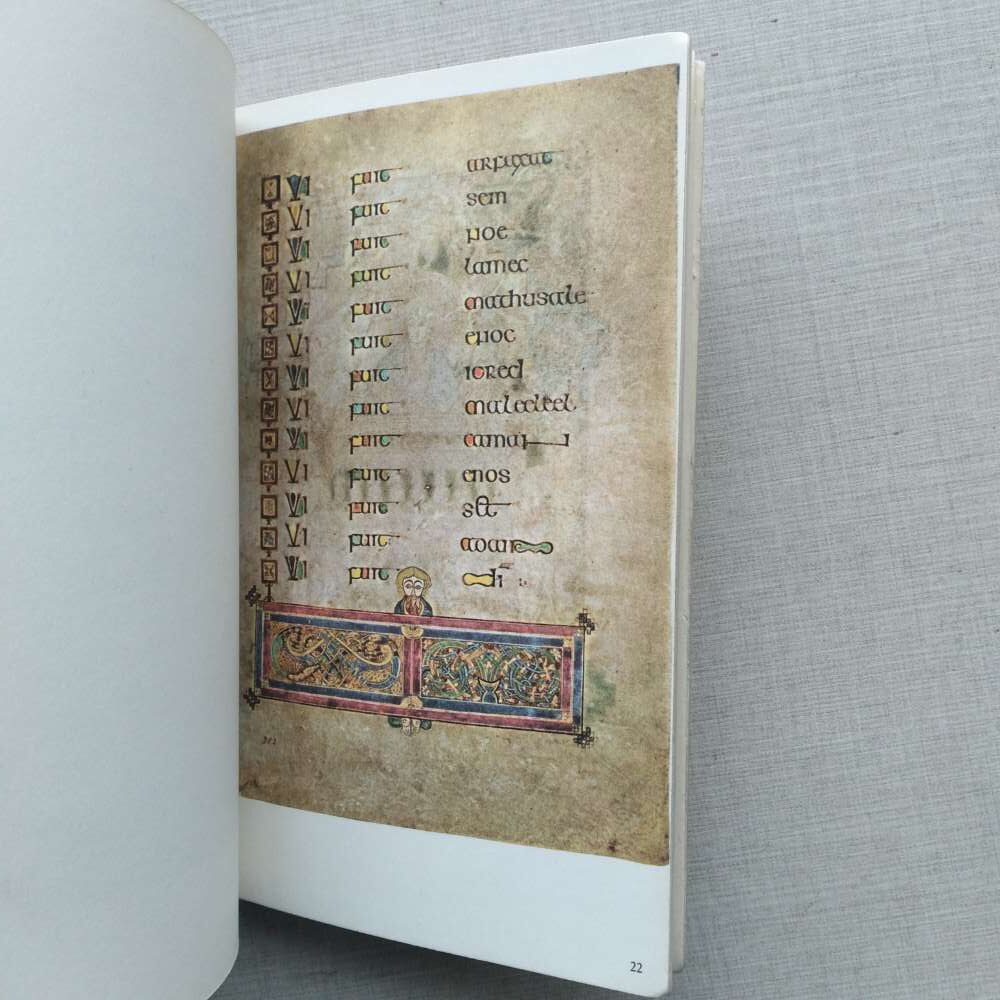 QVI fuit arfaxat
QVI fuit sem
QVI fuit noe
QVI fuit lamec
QVI fuit mathusale
QVI fuit enoc
QVI fuit iared
QVI fuit maleleel
QVI fuit cainan
QVI fuit enos
QVI fuit set
QVI fuit adam
QVI fuit di
202
22